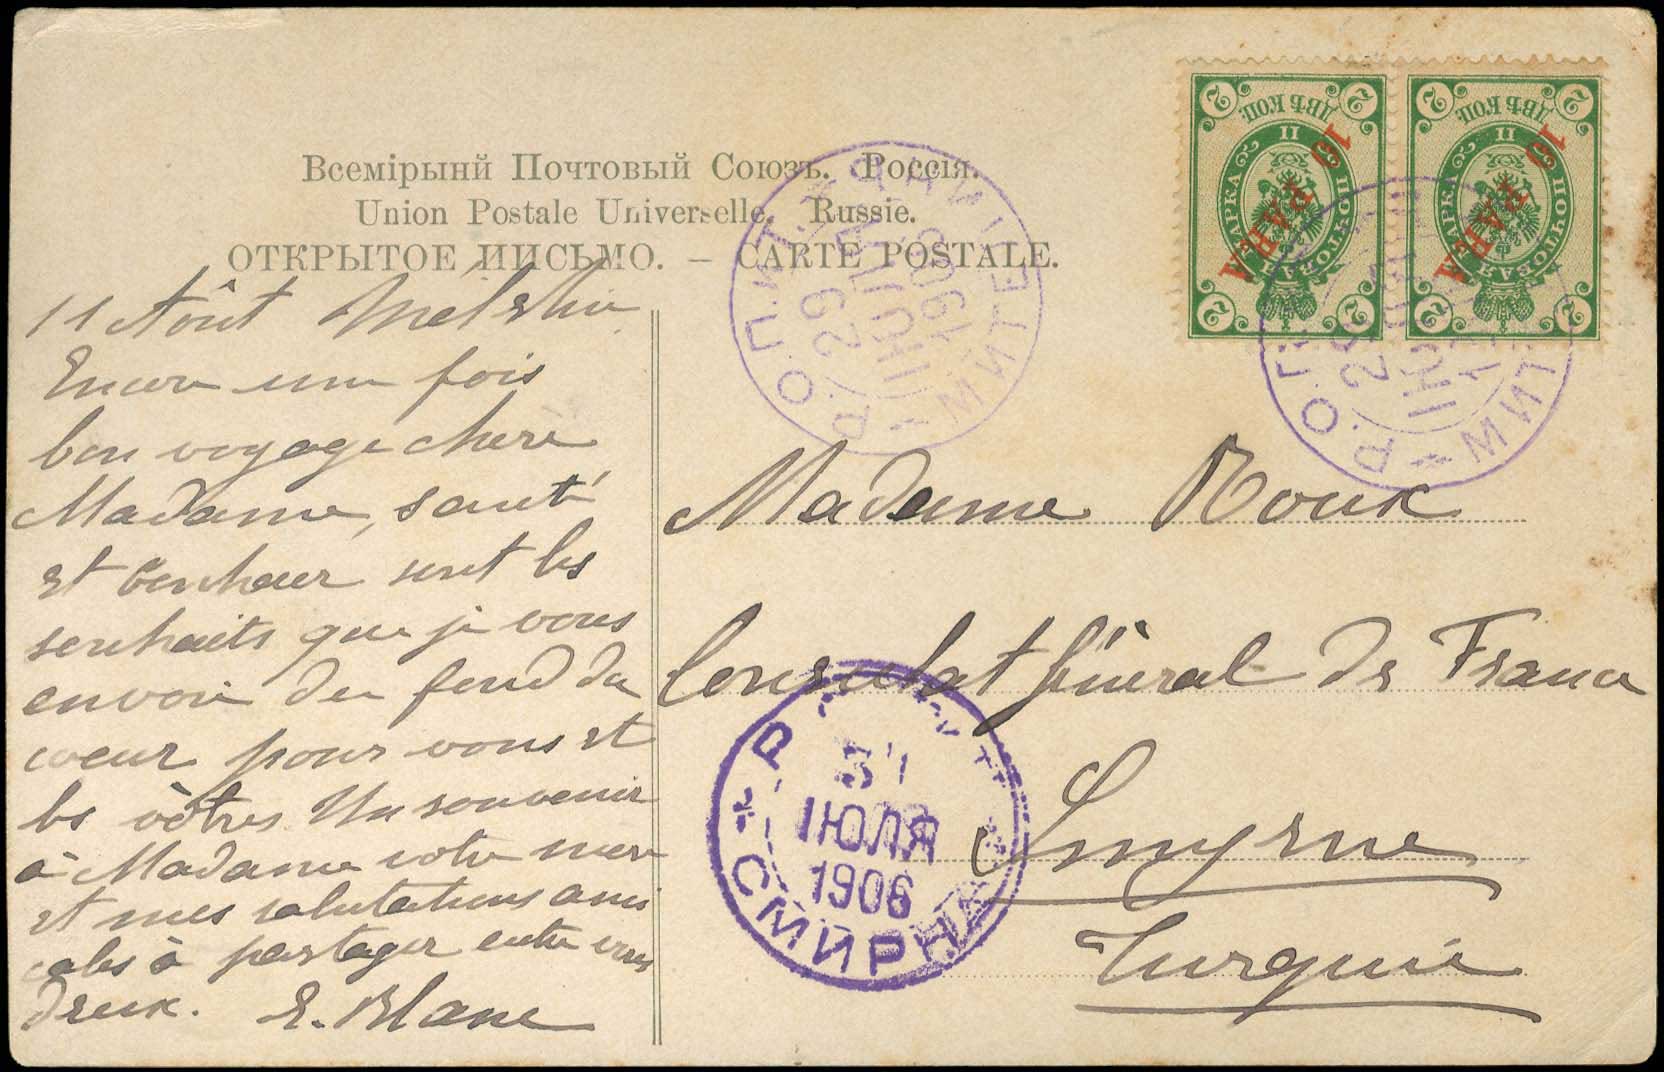 Всемірынй Почтовый Союзъ. Россія.
Union Postale Universelle. Russie.
ОТКРЫТОЕ ПИСЬМО. – CARTE POSTALE.
11 Août
Encore une fois
bon voyage chere
Madame, santé
et bonheur sont les
souhaits que je vous
envoie du fond du
coeur pour vous et
les vôtres Un souvenir
à Madame votre mere
et mes salutations ami
cales à partager entre vous
deux. E. Blanc
Madame Roux
Consulat Général de France
Smyrne
Turquie
Р.О.П.иТ. МИТЕЛ
29 ІЮЛ 1906
Р.О.П. МИТЕЛ
29 ІЮ
31
ІЮЛЯ
1906
СМИРНА
2 2
ДВѢ КОП.
II
ПОЧТОВАЯ МАРКА
10 PARA
2 2
2 2
ДВѢ КОП.
II
ПОЧТОВАЯ МАРКА
10 PARA
2 2